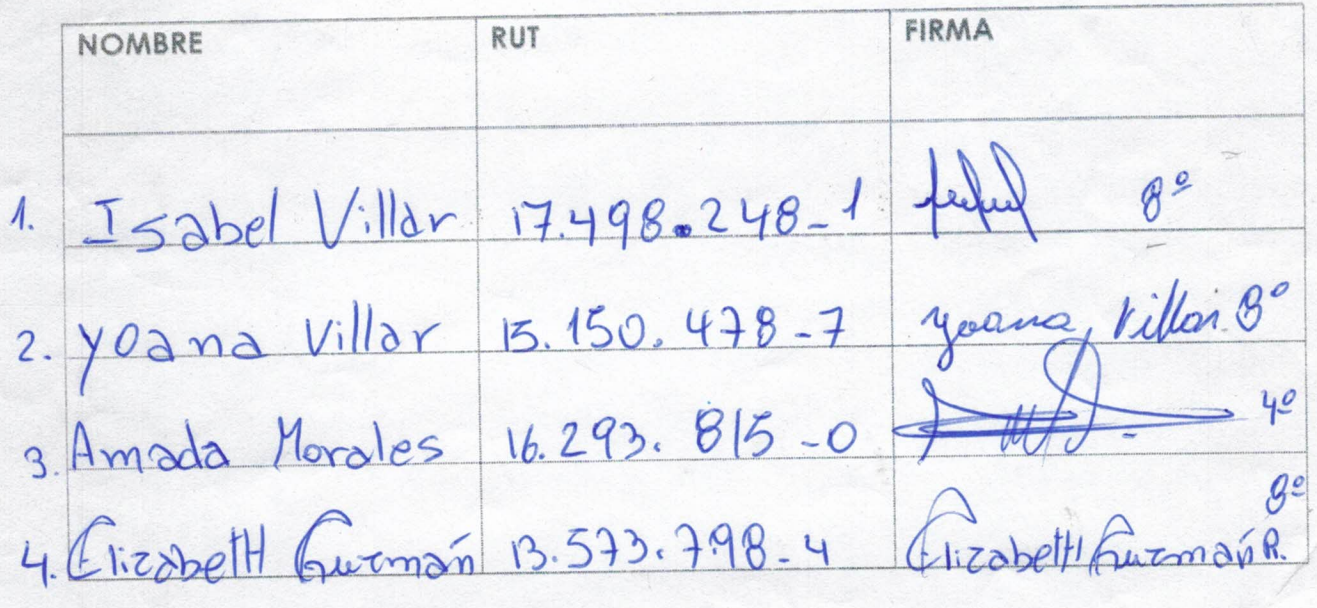 NOMBRE RUT FIRMA
1. Isabel Villar 17.498.248-1 8º
2. Yoana Villar 15.150.478-7 Yoana Villar 8º
3. Amada Morales 16.293.815-0 4º
4. ElizabetH Guzmán 13.573.798-4 ElizabetH Guzmán R. 8º